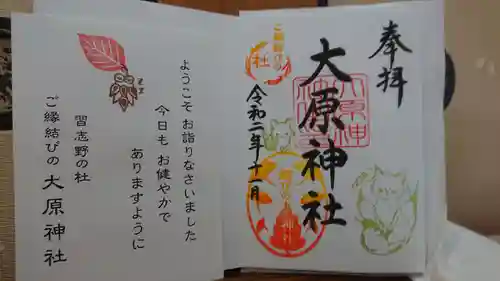 ようこそ お詣りなさいました
今日も お健やかで
ありますように
習志野の杜
ご縁結びの 大原神社
奉拝
大原神社
令和二年十一月